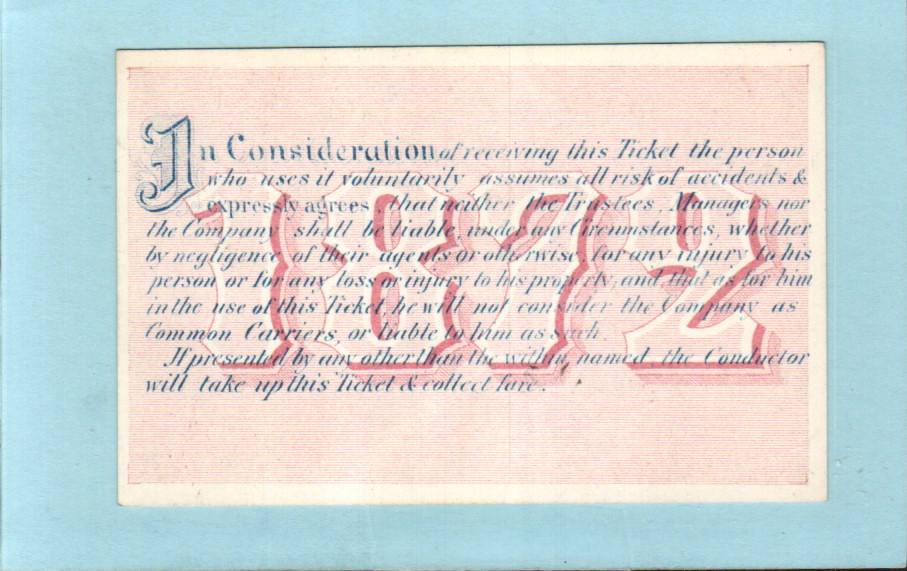 In Consideration of receiving this Ticket the person
who uses it voluntarily assumes all risk of accidents &
expressly agrees, that neither the Trustees, Managers nor
the Company shall be liable, under any Circumstances, whether
by negligence of their agents or otherwise, for any injury to his
person or for any loss or injury to his property, and that as for him
in the use of this Ticket, he will not consider the Company as
Common Carriers, or liable to him as such.
If presented by any other than the within named, the Conductor
will take up this Ticket & collect fare.
1872